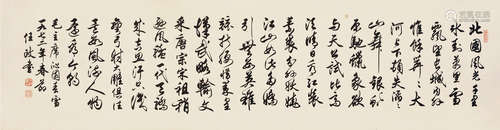 北國風光千里
冰封萬里雪
飄望長城內外
惟餘莽莽大
河上下頓失滔滔
山舞銀蛇
原馳蠟象欲
與天公試比高
須晴日看紅裝
素裹分外妖嬈
江山如此多嬌
引無數英雄
競折腰惜秦皇
漢武略輸文
采唐宗宋祖稍
遜風騷一代天驕
成吉思汗只識
彎弓射大雕俱往
矣數風流人物
還看今朝
毛主席沁園春雪
一九七二年春節
任政書